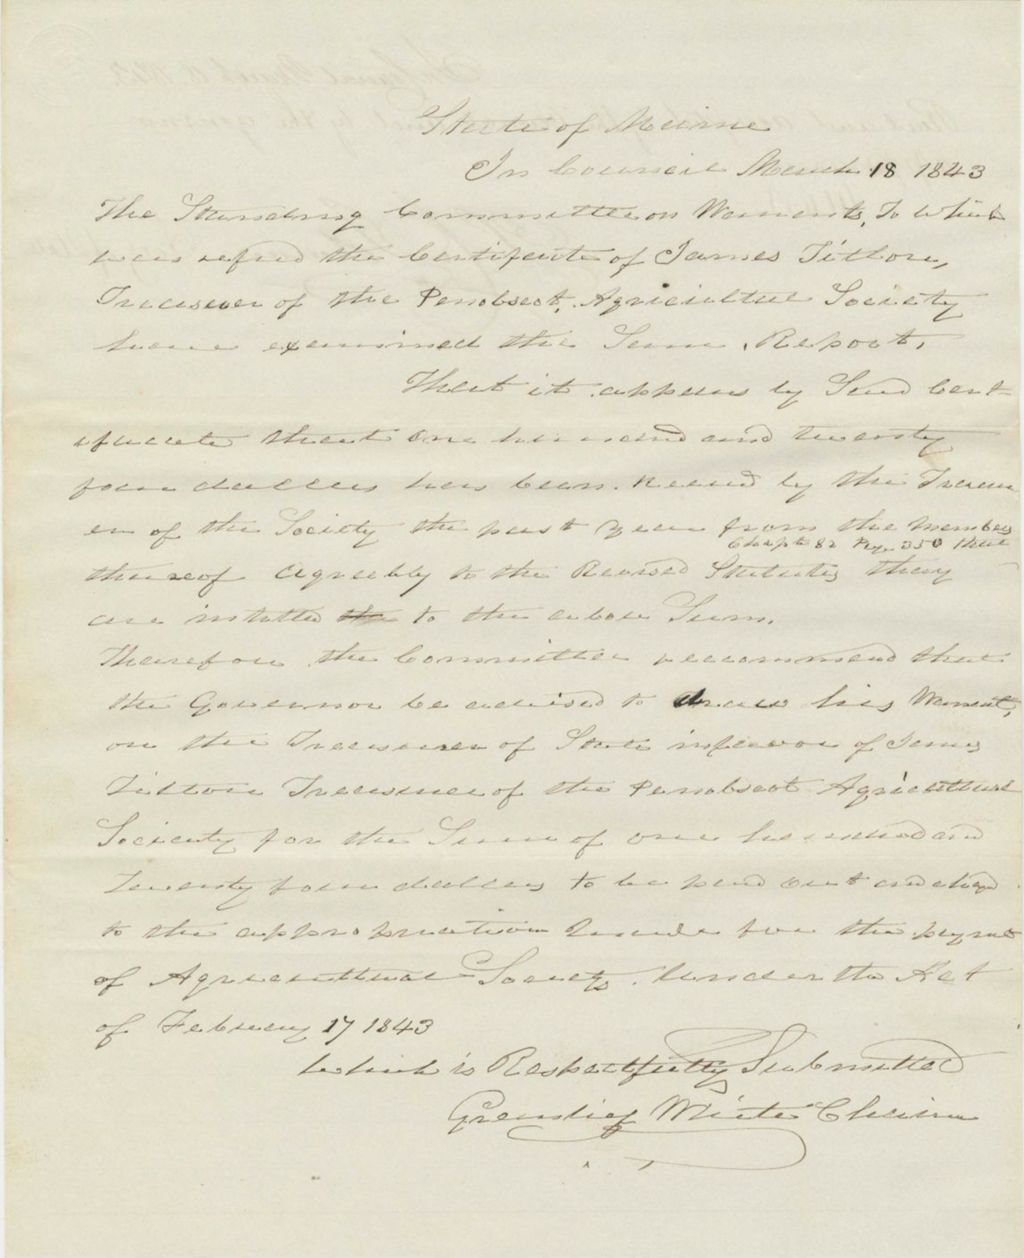 State of Maine
In Council March 18 1843
The Standing Committee on Warrants, To Which
was refered the Certificate of James Titton,
Treasurer of the Penobscot, Agricultul Society
have examined the Same, Report,
That it appears by Said Cert-
ificate that One hundred and twenty
four dollars has been Received by the Treasur
er of the Society the past year from the members
Chapt 82 Pg. 350 that
thereof Agreably to the Revised Statutes they
are intitled the to the above Sum.
Therefore the Committee reccommend that
the Governor be advised to draw his Warrant,
on the Treasurer of State in favor of James
Titton Treasurer of the Penobscot Agricultural
Society for the Sum of one hundred and
Twenty four dollars to be paid out and charged
to the appropriation made for the paymt
of Agricultural Society, Under the Act
of February 17 1843
Which is Respectfully Submitted
White Chairm